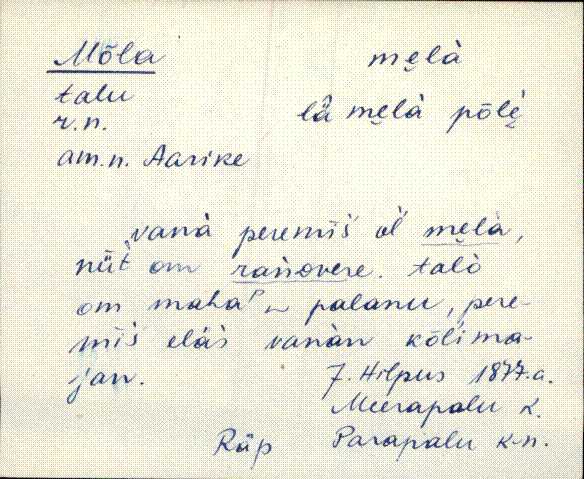 Mõla
me̮là
talu
lǟ me̮là pōlè̮
r.n.
am.n. Aarike
vanà peremīś ol̀ me̮là,
nüt om rańovere. talò
om mahaˀ palanu, pere-
mīś elá̀s vanàn kōlima-
jan.
J. Hilpus 1877.a.
Meerapalu k.
Räp Parapalu k-n.